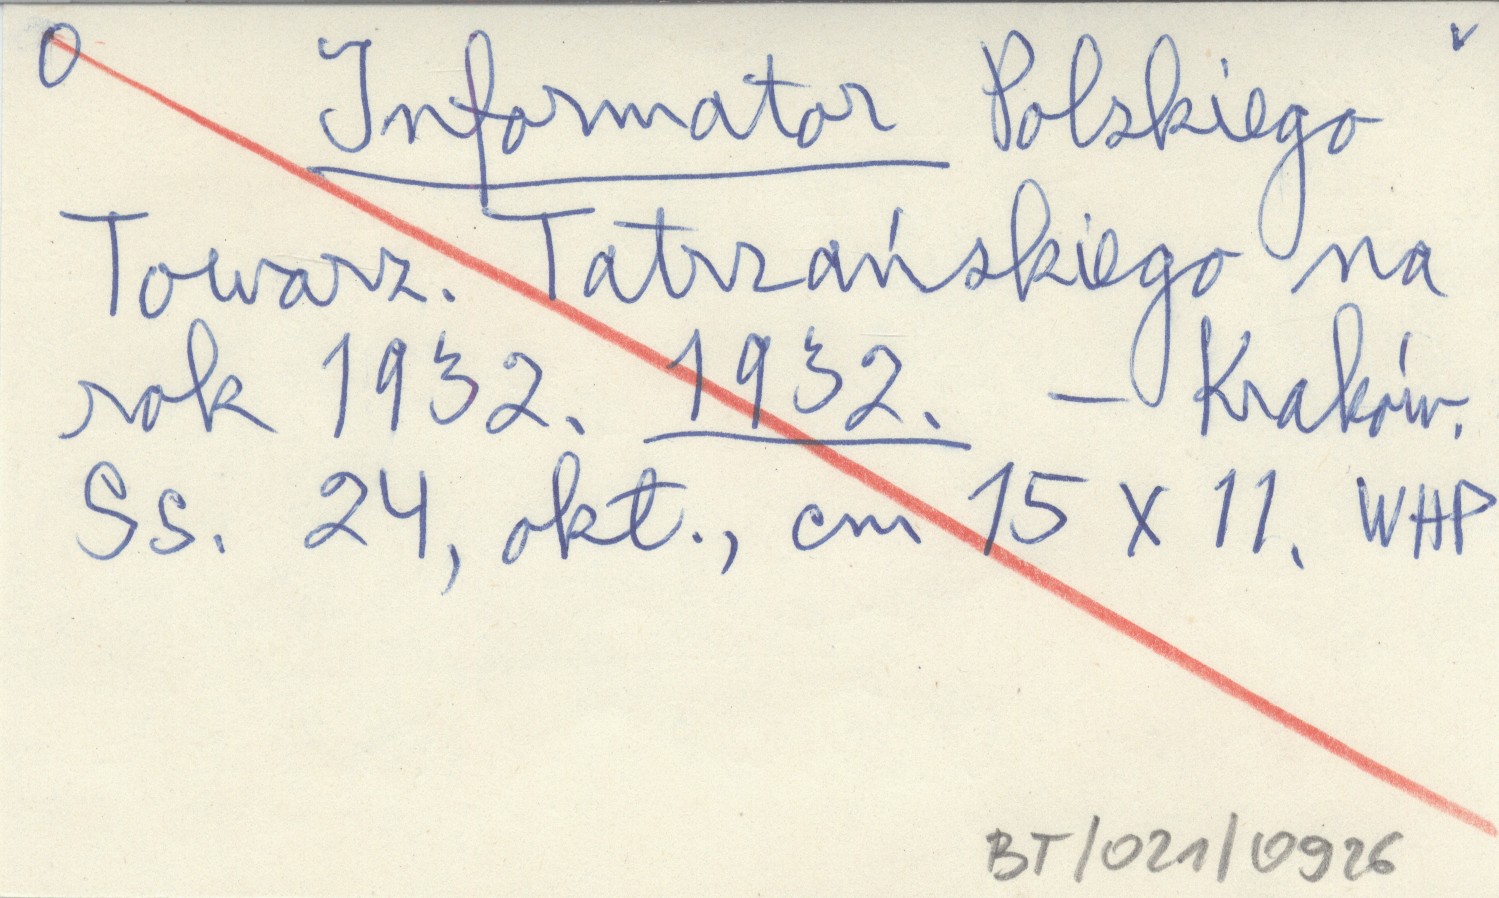 0 Informator Polskiego v
Towarz. Tatrzańskiego na
rok 1932. 1932. — Kraków.
Ss. 24, okt., cm 15 x 11. WHP
BT/021/0926